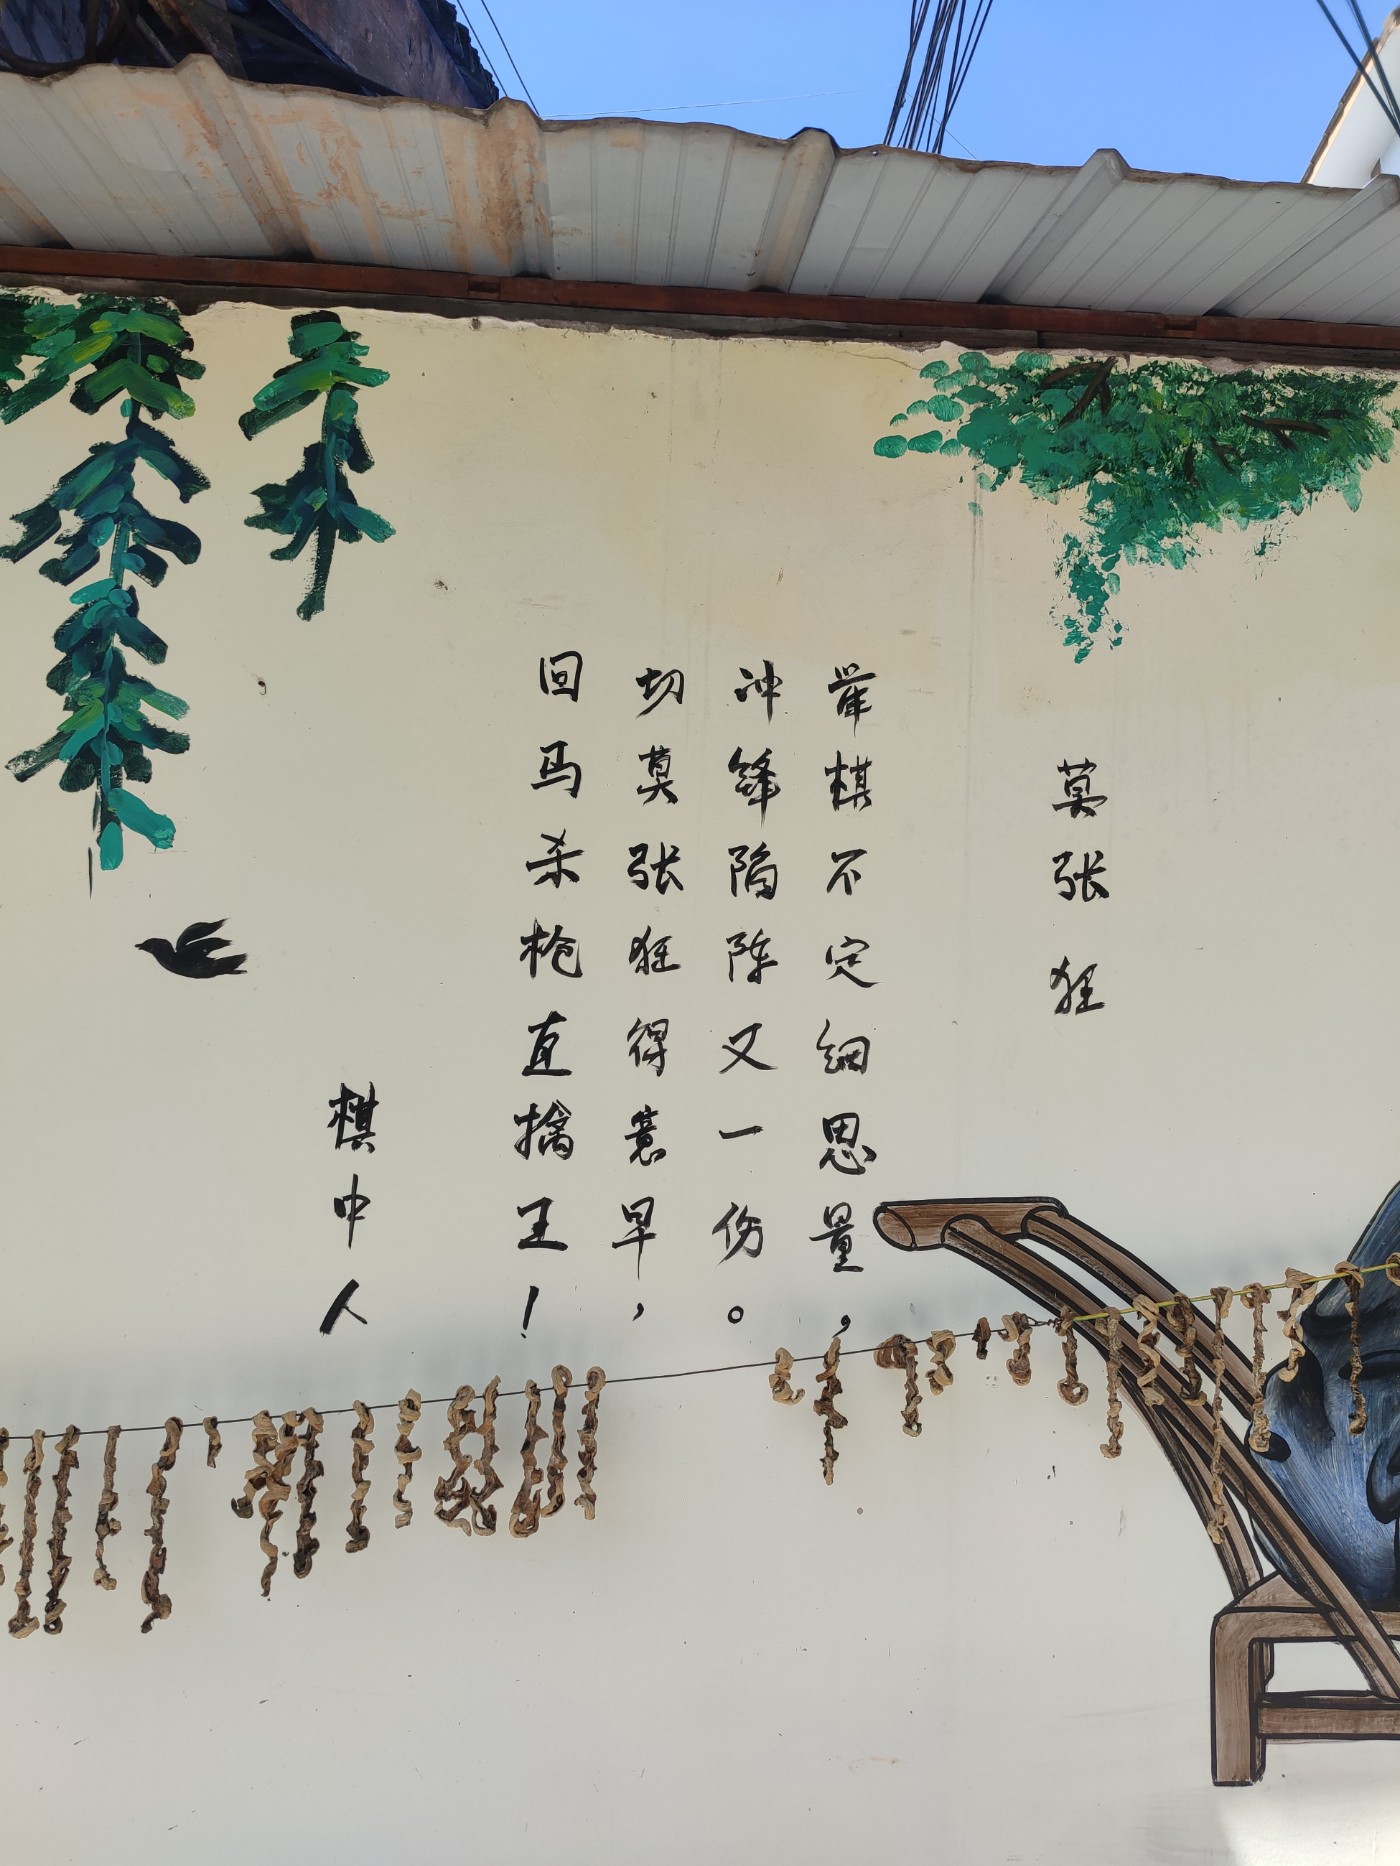 莫张狂
举棋不定细思量，
冲锋陷阵又一伤。
切莫张狂得意早，
回马杀枪直擒王！
棋中人